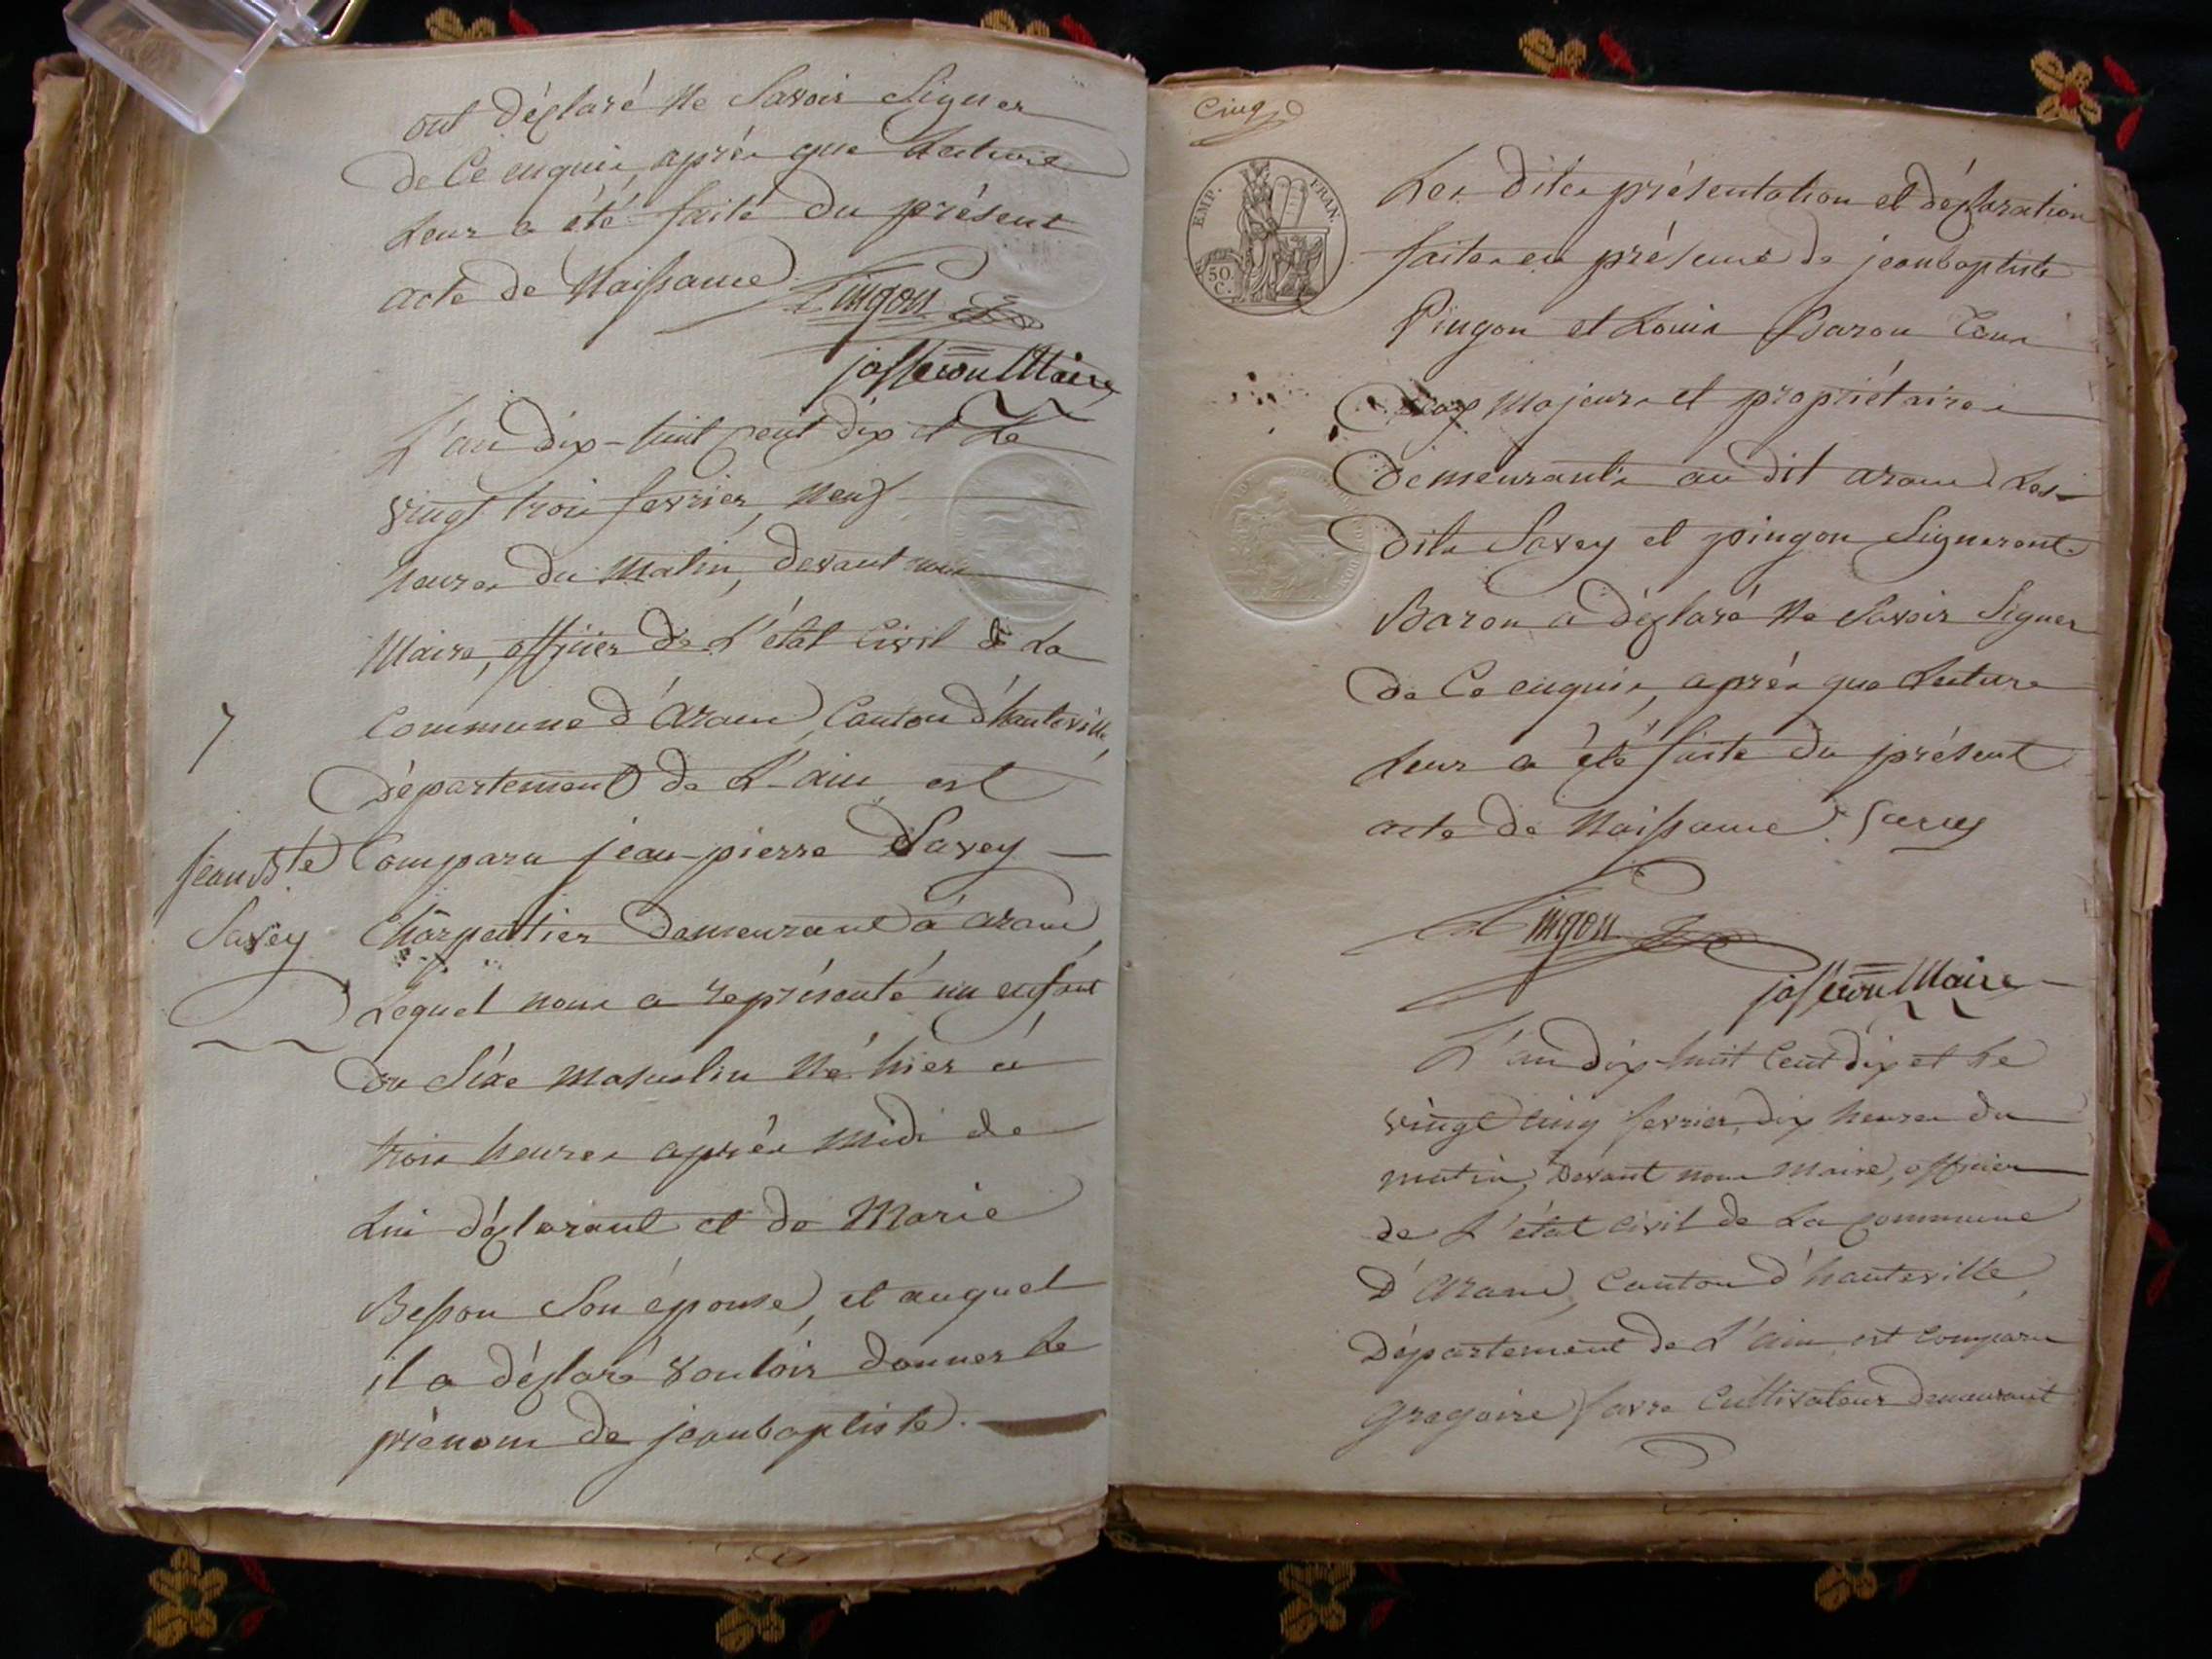 ont déclaré ne savoir signer
de ce enquis, après que lecture
leur a été faite du présent
acte de naissance.
Pingon
josserou Maire
L'an dix-huit cent dix et le
vingt trois fevrier, neuf
heures du matin, devant nous
Maire, officier de L'état civil de La
Commune d'aranc, Canton d'hauteville,
Département de L'ain est
7
Jean Bte
Savey
Comparu jean-pierre Savey
Charpentier demeurant à aranc,
Lequel nous a représenté un enfant
du séxe masculin né hier à
trois heures après midi de
Lui déclarant et de Marie
Besson son épouse, et auquel
il a déclaré vouloir donner le
prénom de jeanbaptiste.
Cinq
EMP. FRAN.
50 C.
Les dites présentation et déclaration
faites en présence de jeanbaptiste
Pingon et Louis Baron tous
deux majeurs et propriétaires
demeurants au dit aranc Les
dits Savey et pingon signeront.
Baron a déclaré ne savoir signer
de ce enquis, après que lecture
leur a été faite du présent
acte de naissance. Savey
Pingon
josserou Maire
L'an dix-huit cent dix et le
vingt cinq fevrier, dix heures du
matin, devant nous Maire, officier
de L'état civil de La commune
D'aranc, Canton d'hauteville,
Département de L'ain est comparu
gregoire favre Cultivateur demeurant